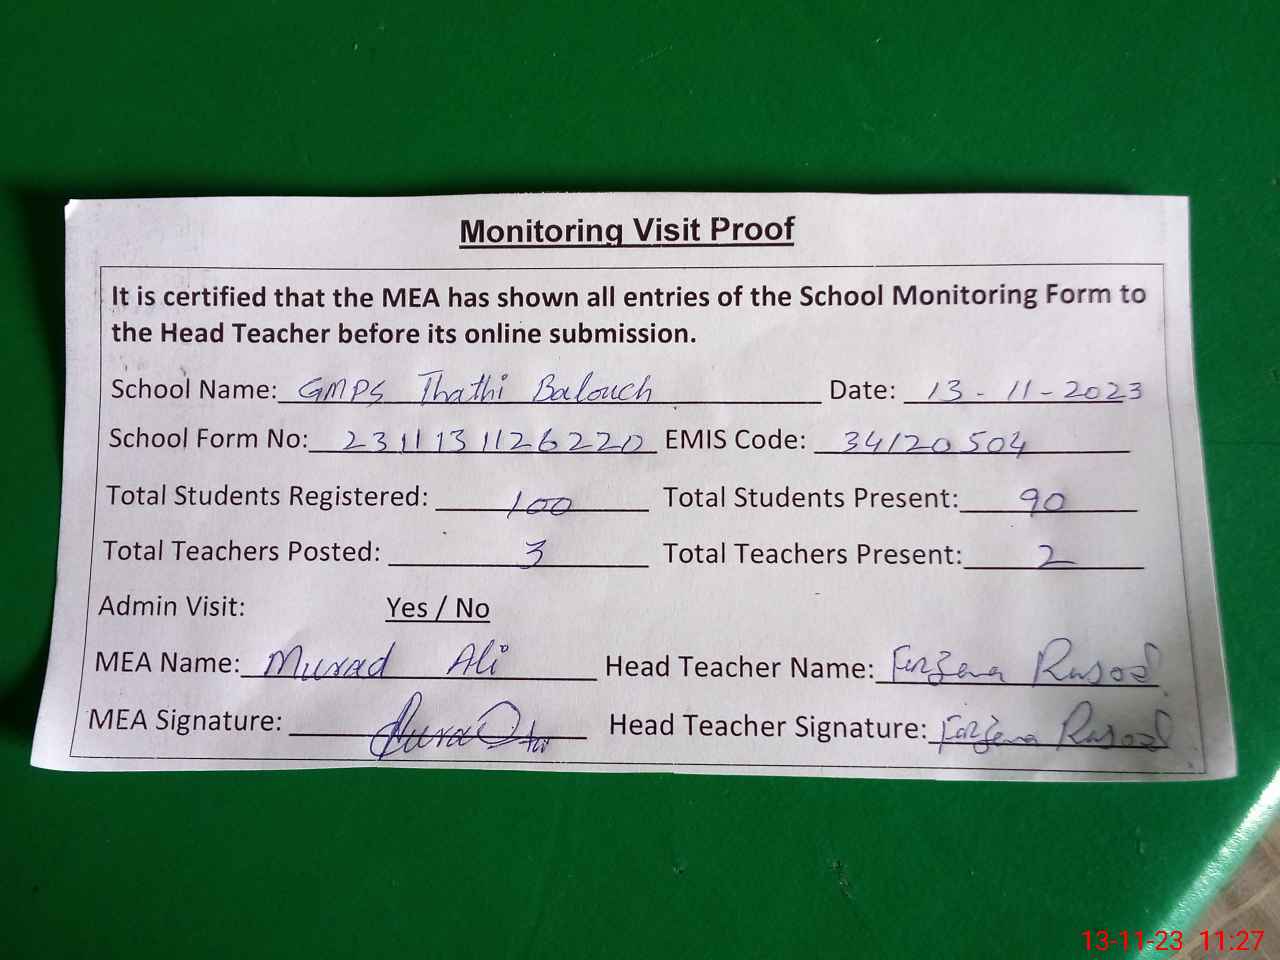 Monitoring Visit Proof
It is certified that the MEA has shown all entries of the School Monitoring Form to
the Head Teacher before its online submission.
School Name: GMPS Thathi Balouch Date: 13-11-2023
School Form No: 2311131126220 EMIS Code: 34120504
Total Students Registered: 100 Total Students Present: 90
Total Teachers Posted: 3 Total Teachers Present: 2
Admin Visit: Yes / No
MEA Name: Murad Ali Head Teacher Name: Farzana Rasool
MEA Signature: Head Teacher Signature: Farzana Rasool
13-11-23 11:27